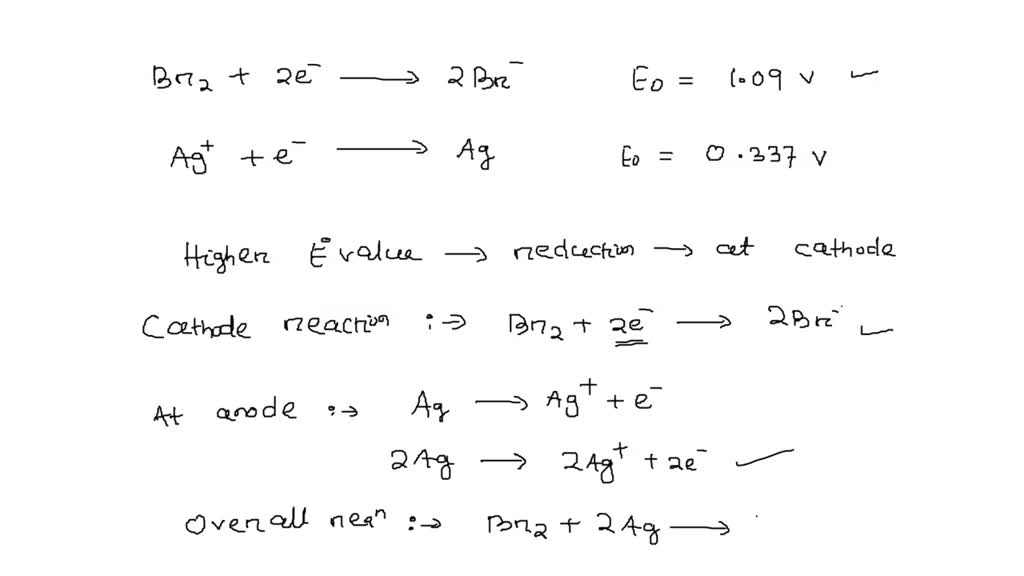 Br₂ + 2e⁻ ⟶ 2Br⁻ E₀ = 1.09 v ✓
Ag⁺ + e⁻ ⟶ Ag E₀ = 0.337 v
Higher E° value → reduction → at cathode
Cathode reaction :→ Br₂ + 2e⁻ ⟶ 2Br⁻ ✓
At anode :→ Ag ⟶ Ag⁺ + e⁻
2Ag ⟶ 2Ag⁺ + 2e⁻ ✓
Overall reaⁿ :→ Br₂ + 2Ag ⟶